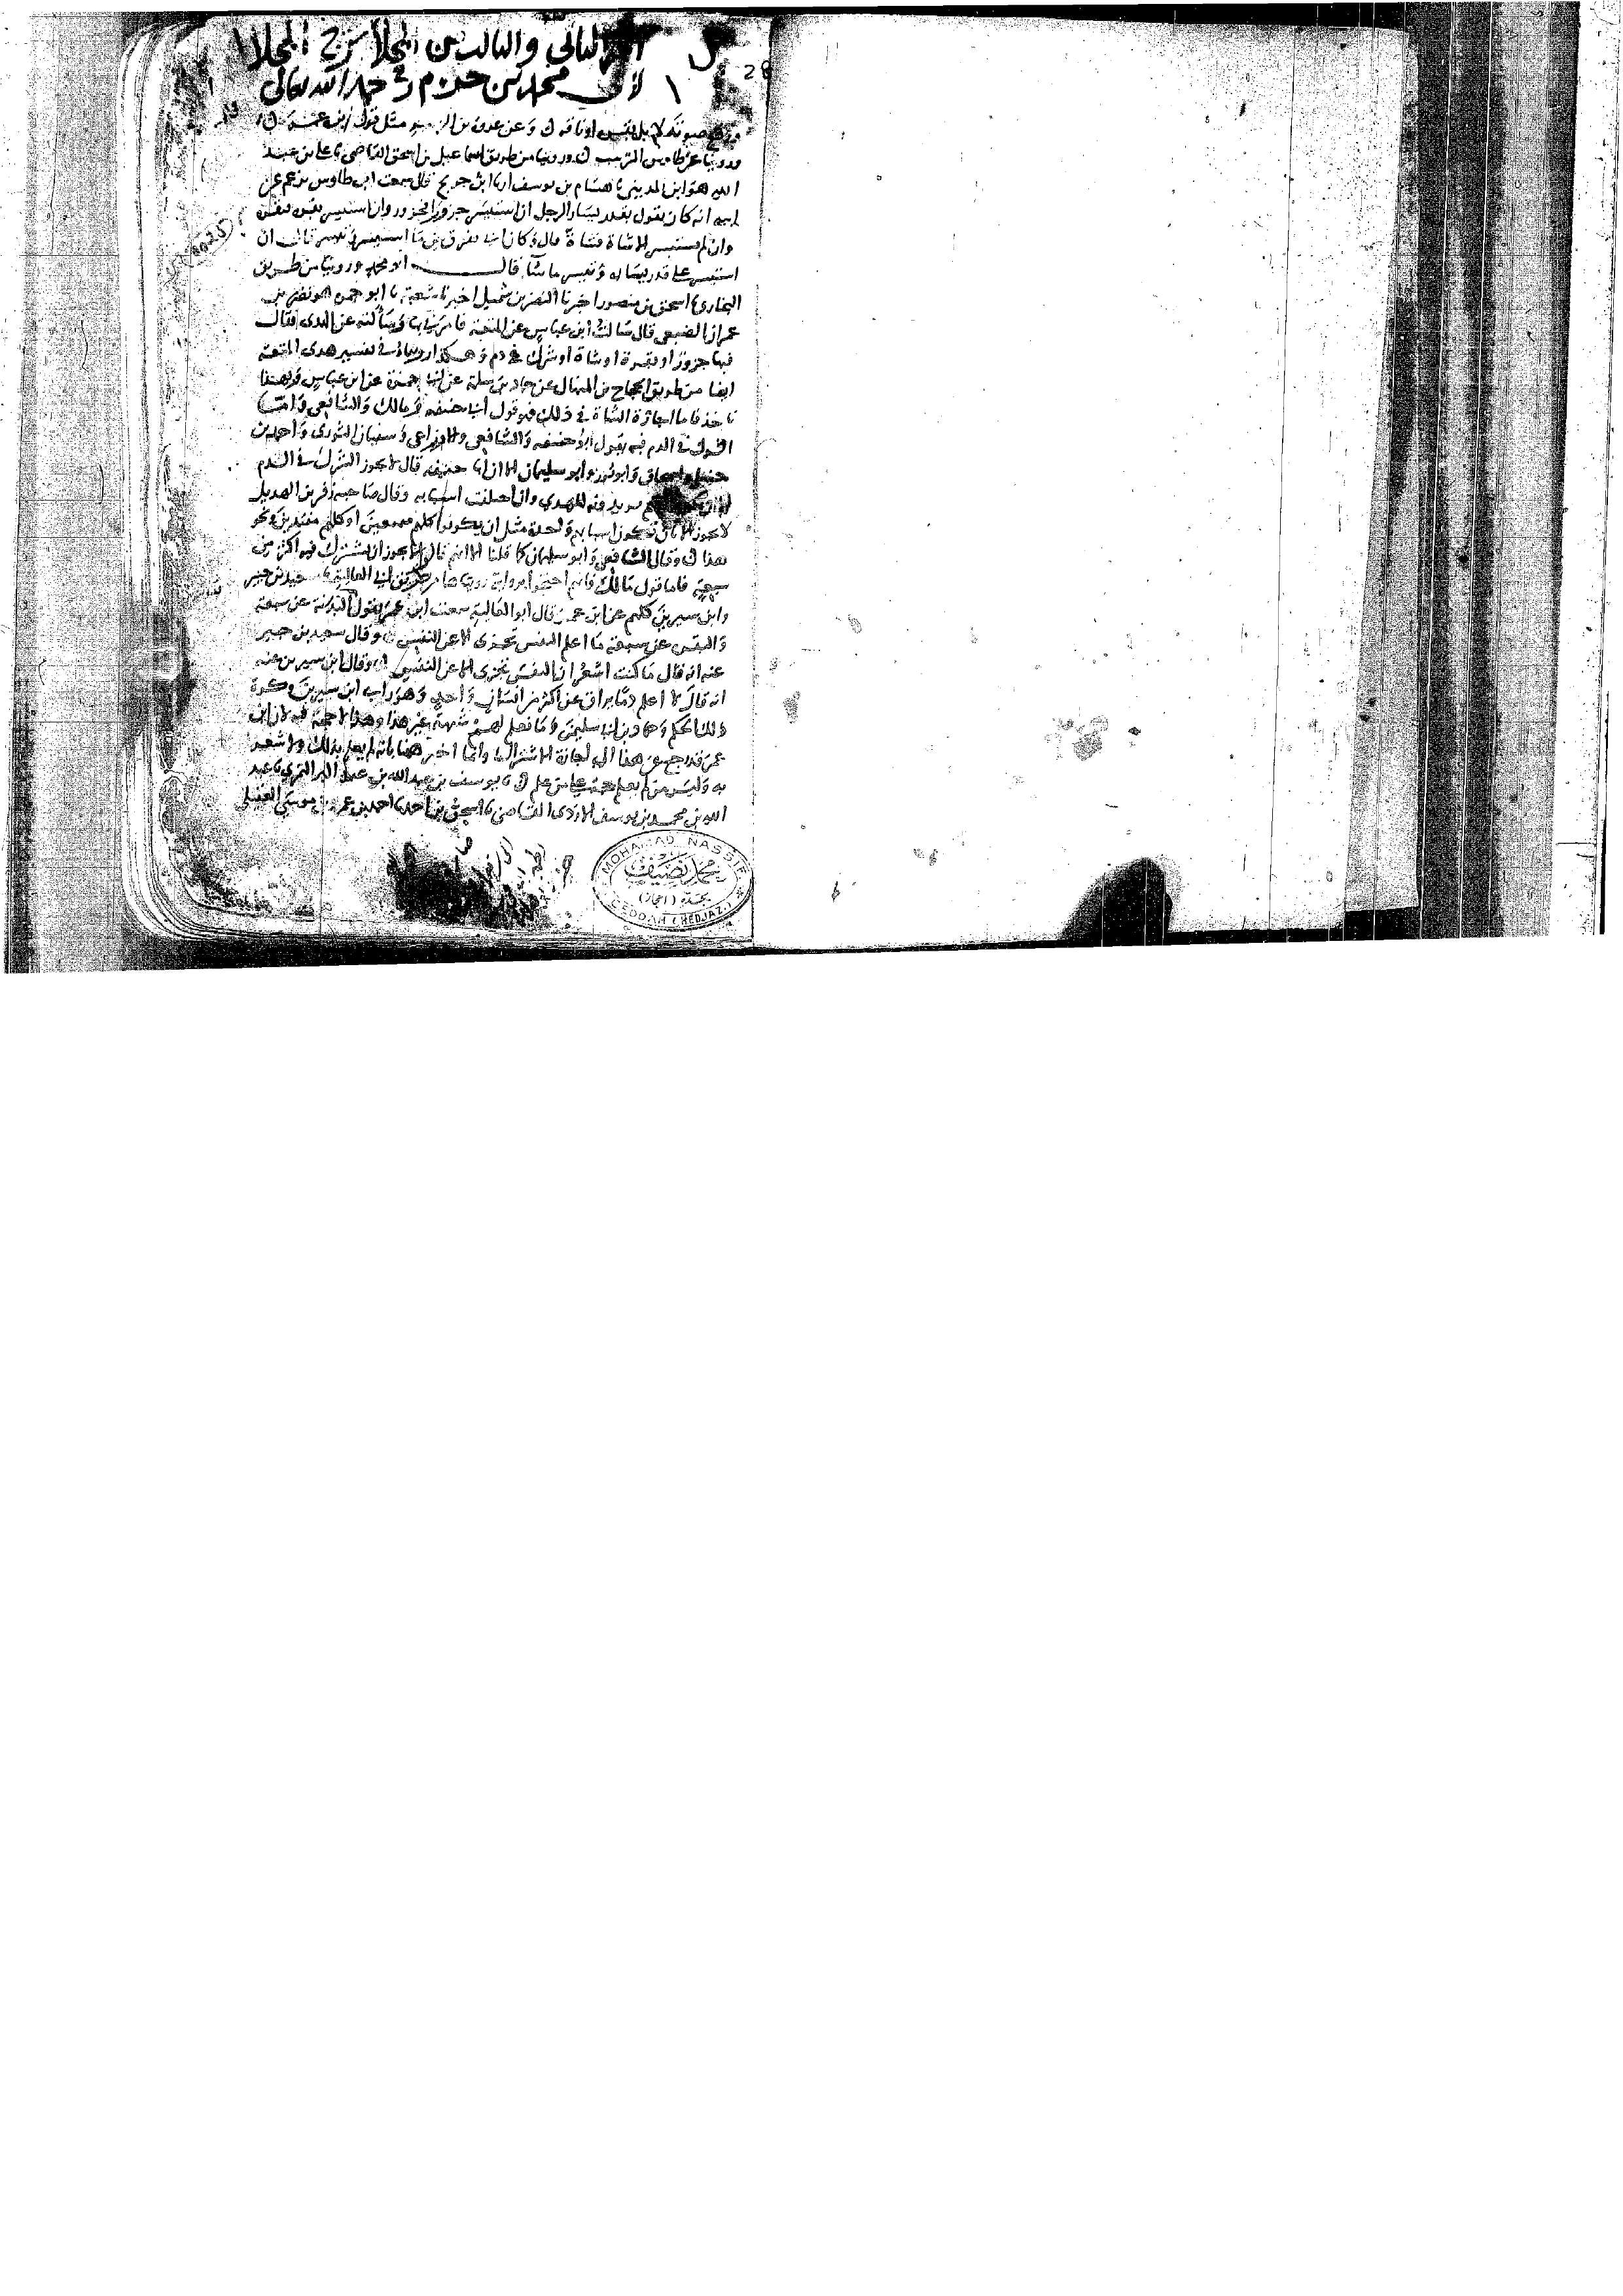 الثاني والثالث من المحلا شرح المجلا
لأبي محمد بن حزم رحمه الله تعالى
28
بل بقرة او ناقة وعن عروة بن الزبير مثل قول ابن عمر
وروينا عن طاوس وروينا من طريق اسماعيل بن اسحق القاضي نا علي بن عبد
الله هو ابن المديني نا هشام بن يوسف انا ابن جريج قال سمعت ابن طاوس يزعم عن
ابيه انه كان يقول بقدر يسار الرجل ان استيسر جزورا فجزور وان استيسر بقرة فبقرة
وان لم يستيسر الا شاة فشاة قال وكان ابي يفرق بين ما استيسر وتيسر قال ان
استيسر على قدر يساره وتيسر ما شاء قال ابو محمد وروينا من طريق
البخاري نا اسحق بن منصور اخبرنا النضر بن شميل اخبرنا شعبة نا ابو جمرة هو نصر بن
عمران الضبعي قال سالت ابن عباس عن المتعة فامرني بها وسالته عن الهدى فقال
فيها جزور او بقرة او شاة او شرك في دم وهكذا رويناه في تفسير هدى المتعة
ايضا من طريق الحجاج بن المنهال عن حماد بن سلمة عن ابي جمرة عن ابن عباس وبهذا
ناخذ فاما اجازة الشاة في ذلك فهو قول ابي حنيفه ومالك والشافعي واما
الشرك في الدم فبه يقول ابو حنيفه والشافعي والاوزاعي وسفيان الثوري واحمد بن
حنبل واسحاق وابو ثور وابو سليمان الا ان ابا حنيفه قال لا يجوز الشرك في الدم
يريد به الهدى وان اختلفت اسبابه وقال صاحبه زفر بن الهذيل
لا يجوز الا بان تكون اسبابهم واحدة مثل ان يكونوا كلهم متمتعين او كلهم مفتدين ونحو
هذا وقال الشافعي وابو سليمان كما قلنا الا انهم قالوا لا يجوز ان يشترك فيه اكثر من
سبعة فاما قول مالك فانهم احتجوا برواية رويناها من طريق ابن ابي العالية وسعيد بن جبير
وابن سيرين كلهم عن ابن عمر قال ابو العالية سمعت ابن عمر يقول البدنة عن سبعة
والبقرة عن سبعة ما اعلم النفس تجزى الا عن النفس وقال سعيد بن جبير
عنه انه قال ما كنت اشعر ان النفس تجزى الا عن النفس وقال ابن سيرين عنه
انه قال لا اعلم دما يراق عن اكثر من انسان واحد وهو راي ابن سيرين وكره
ذلك الحكم وحماد بن ابي سليمن وما نعلم لهم شبهة غير هذا وهذا لا حجة فيه لان ابن
عمر قد رجع عن هذا الى اجازة الاشتراك وانما اخبر ههنا بانه لم يعلم بذلك ولا شعر
به وليس من لم يعلم حجة على من علم نا يوسف بن عبد الله بن عبد البر النمري نا عبد
الله بن محمد بن يوسف الازدي القاضي نا اسحق بن احمد نا احمد بن عمرو بن موسى العقيلي
MOHAMAD NASSIF
محمد نصيف
بجدة (الحجاز)
DJEDDAH (HEDJAZ)